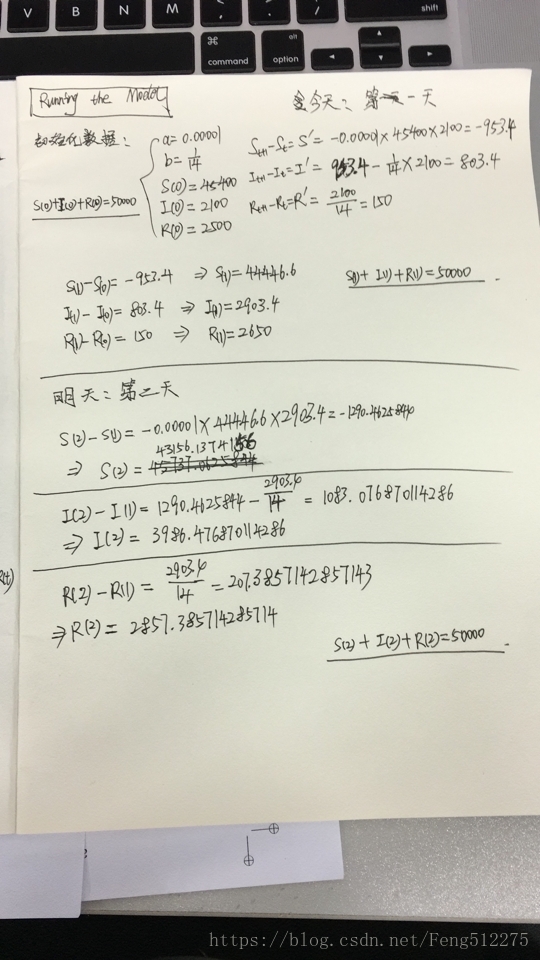 V B N M < , > . ? / shift
⌘ command alt option ◄ ▲ ▼ ►
Running the Model
今天：第一天
初始化数据：
a = 0.00001
b = 1/14
S(0) = 45400
I(0) = 2100
R(0) = 2500
S(0)+I(0)+R(0)=50000
St+1-St=S' = -0.00001×45400×2100=-953.4
It+1-It=I' = 953.4 - 1/14 × 2100 = 803.4
Rt+1-Rt=R' = 2100/14 = 150
S(1)-S(0)= -953.4 ⇒ S(1)=44446.6
I(1)-I(0)= 803.4 ⇒ I(1)=2903.4
R(1)-R(0)= 150 ⇒ R(1)=2650
S(1)+I(1)+R(1)=50000
明天：第二天
S(2)-S(1)= -0.00001×44446.6×2903.4=-1290.4625844
43156.1374156
⇒ S(2)= 45737.0625844
I(2)-I(1)= 1290.4625844 - 2903.4/14 = 1083.076870114286
⇒ I(2)= 3986.476870114286
R(2)-R(1)= 2903.4/14 = 207.3857142857143
⇒ R(2)= 2857.385714285714
S(2)+I(2)+R(2)=50000
https://blog.csdn.net/Feng512275